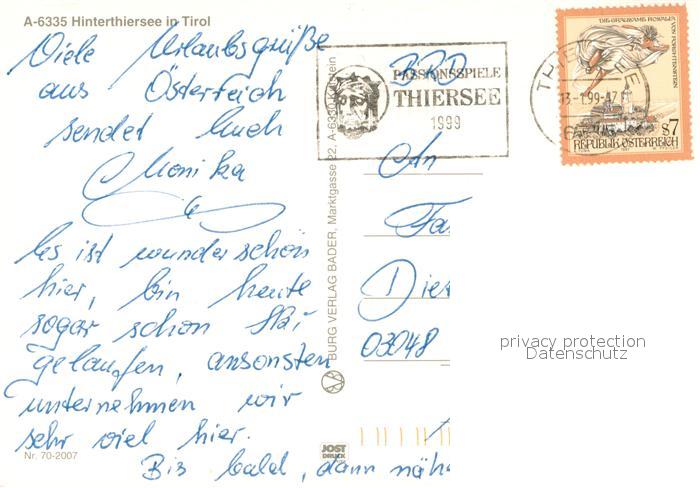 A-6335 Hinterthiersee in Tirol
Viele Urlaubsgrüße
aus Österreich
sendet Euch
Monika
Es ist wunderschön
hier, bin heute
sogar schon Ski
gelaufen, ansonsten
unternehmen wir
sehr viel hier.
Bis bald, dann näh
Nr. 70-2007
BURG VERLAG BADER, Marktgasse 22, A-6330 Kufstein
JOST
DRUCK
BRD
PASSIONSSPIELE
THIERSEE
1999
An
Fa
Die
03048
DIE GRAUSAME ROSALIA
VON FORCHTENSTEIN
THIERSEE
13-1.99-17
6335
S7
REPUBLIK ÖSTERREICH
privacy protection
Datenschutz